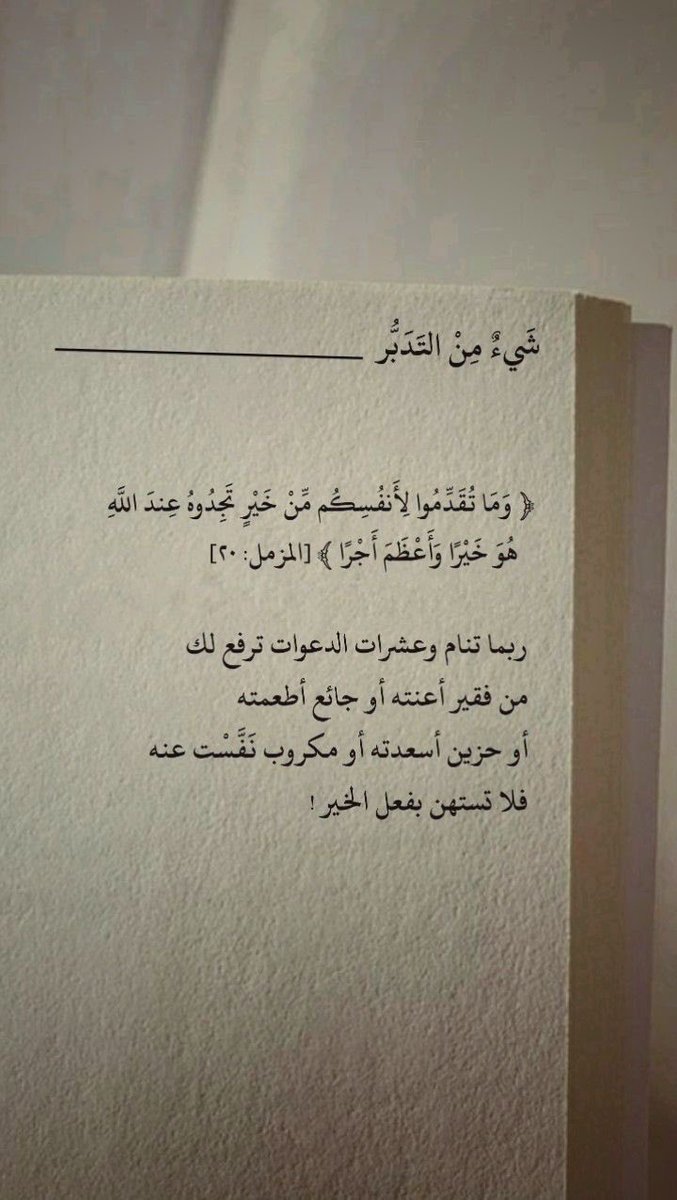 شَيءٌ مِنْ التَدَبُّر
﴿ وَمَا تُقَدِّمُوا لِأَنفُسِكُم مِّنْ خَيْرٍ تَجِدُوهُ عِندَ اللَّهِ
هُوَ خَيْرًا وَأَعْظَمَ أَجْرًا ﴾ [المزمل: ٢٠]
ربما تنام وعشرات الدعوات ترفع لك
من فقير أعنته أو جائع أطعمته
أو حزين أسعدته أو مكروب نَفَّسْت عنه
فلا تستهن بفعل الخير !